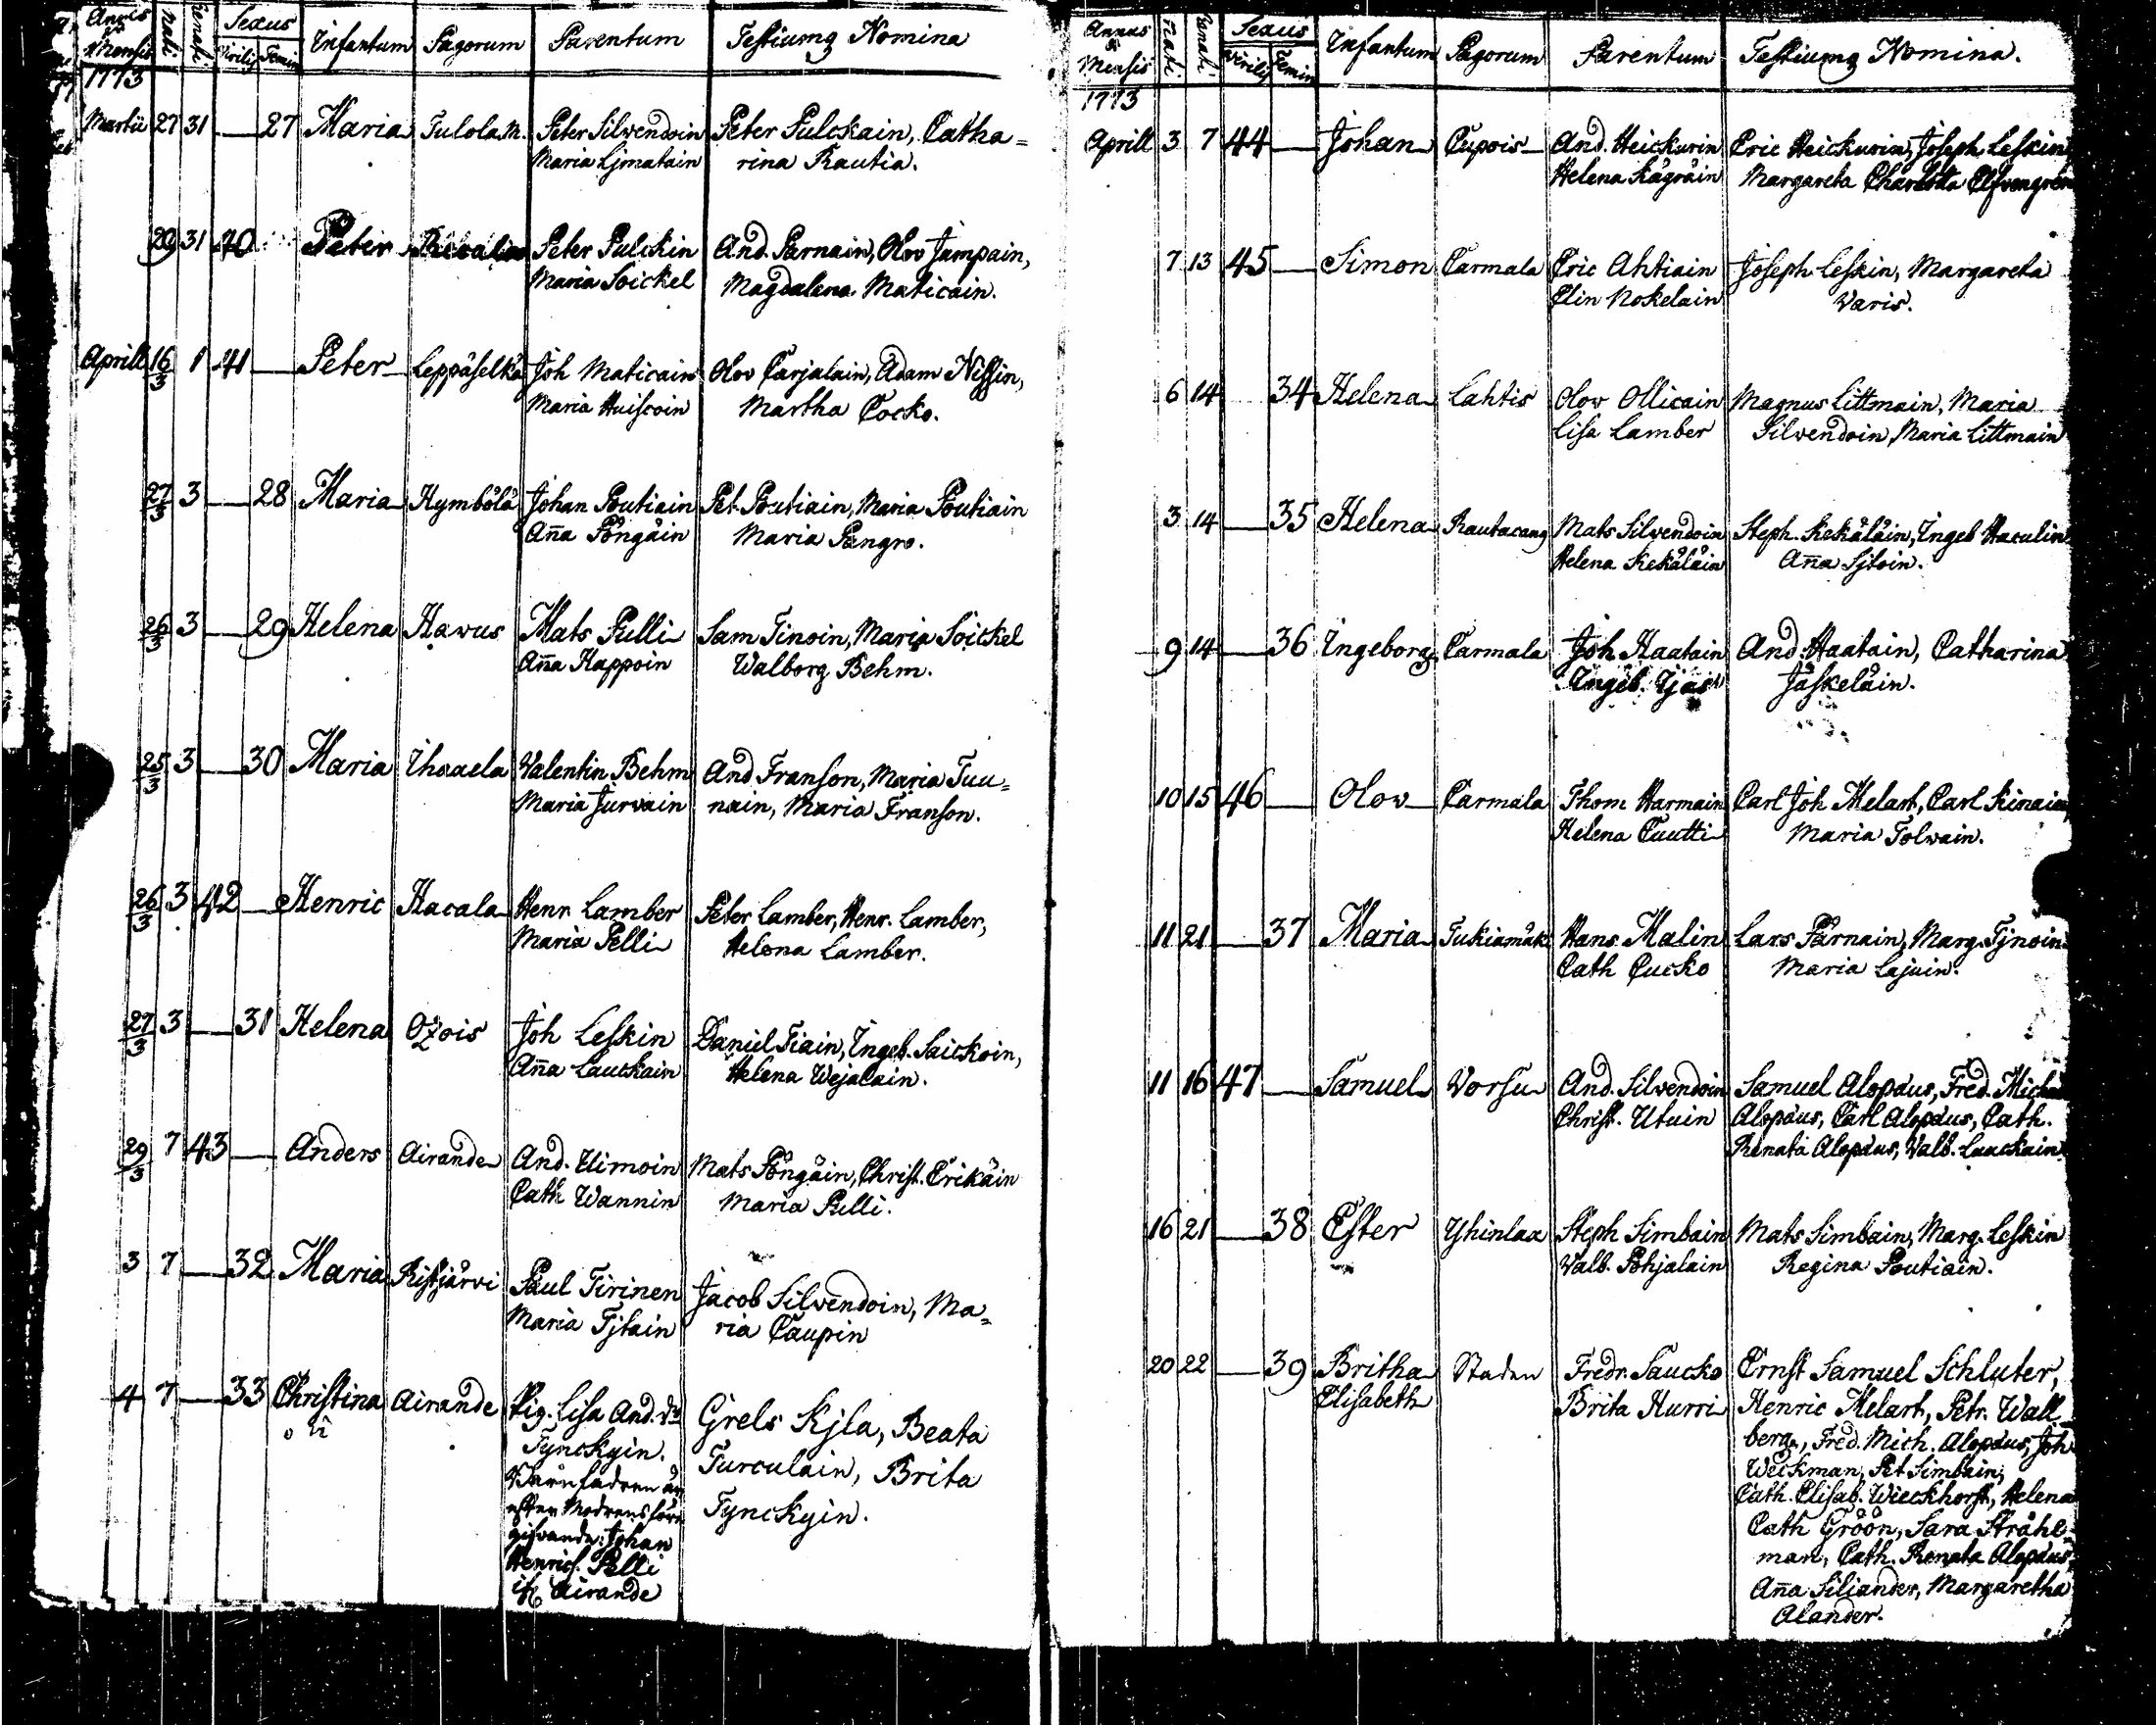 Annus & Mensis Nati Renati Sexus Virilis Femin Infantum Pagorum Parentum Testiumq Nomina
1773
Martii 27 31 — 27 Maria Tulola M. Peter Silvendoin Peter Pulckain, Catha=
Maria Ljmatain rina Rautia.
29 31 40 Peter Peter Pulckin And. Parnain, Olov Jampain,
Maria Soickel Magdalena Maticain.
Aprill 16/3 1 41 — Peter Leppäselkä Joh Maticain Olov Carjalain, Adam Nissin,
Maria Huiscoin Martha Cocko.
27/3 3 — 28 Maria Hymbölä Johan Poutiain Pet. Poutiain, Maria Poutiain
Añna Pöngäin Maria Pangro.
26/3 3 — 29 Helena Havus Mats Pulli Sam Tinoin, Maria Soickel
Añna Happoin Walborg Behm.
25/3 3 — 30 Maria Ihaaela Valentin Behm And Franson, Maria Tuu=
Maria Jurvain nain, Maria Franson.
26/3 3 42 — Henric Hacala Henr. Lamber Peter Lamber, Henr. Lamber,
Maria Pelli Helena Lamber.
27/3 3 — 31 Helena Ozois Joh Leskin Daniel Tiain, Ingeb. Saickoin,
Añna Lauckain Helena Wejalain.
29/3 7 43 — Anders Airande And. Uimoin Mats Pöngäin, Christ. Erikäin
Cath Wannin Maria Pulli.
3 7 — 32 Maria Ristjärvi Paul Tirinen Jacob Silvendoin, Ma=
Maria Tjtain ria Caupin
4 7 — 33 Christina Airande Pig. Lisa And. dr Grels Kjla, Beata
oä Tynckyin. Turculain, Brita
Barnfadren är Tynckyin.
efter Modrens före
gifvande: Johan
Henrics. Pelli
if. Airande
Annus & Mensis Nati Renati Sexus Virilis Femin Infantum Pagorum Parentum Testiumq Nomina.
1773
Aprill 3 7 44 — Johan Cupois And. Heickurin Eric Heickurin, Joseph Leskin
Helena Kägräin Margareta Charlotta Elfvengren
7 13 45 — Simon Carmala Eric Ahtiain Joseph Leskin, Margareta
Elin Nokelain Varis.
6 14 34 Helena Lahtis Olov Ollicain Magnus Littmain, Maria
Lisa Lamber Silvendoin, Maria Littmain
3 14 — 35 Helena Rautacang Mats Silvendoin Steph. Kekäläin, Ingeb Haculin
Helena Kekäläin Añna Sjtoin.
9 14 — 36 Ingeborg Carmala Joh Haatain And. Haatain, Catharina
Ingeb. Ijäs Jäskeläin.
10 15 46 — Olov Carmala Thom Harmain Carl Joh Melart, Carl Kinain
Helena Cuutti Maria Tolvain.
11 21 — 37 Maria Tukiamäki Hans Malin Lars Pärnain, Marg. Tjnoin
Cath Cucko Maria Lajuin.
11 16 47 — Samuel Vorsu And. Silvendoin Samuel Alopäus, Fred. Michä
Christ. Utuin Alopäus, Carl Alopäus, Cath.
Renata Alopäus, Valb. Lauckain
16 21 — 38 Ester Yhinlax Steph Simbain Mats Simbain, Marg. Leskin
Valb. Pohjalain Regina Poutiain.
20 22 — 39 Britha Staden Fredr. Saucko Ernst Samuel Schluter,
Elisabeth Brita Hurri Henric Melart, Petr. Wall=
berg, Fred. Mich. Alopäus, Joh
Weckman, Pet Simbain,
Cath. Elisab. Wieckhorst, Helena
Cath Gröön, Sara Stråhl=
man, Cath. Renata Alopäus,
Añna Siliander, Margaretha
Alander.